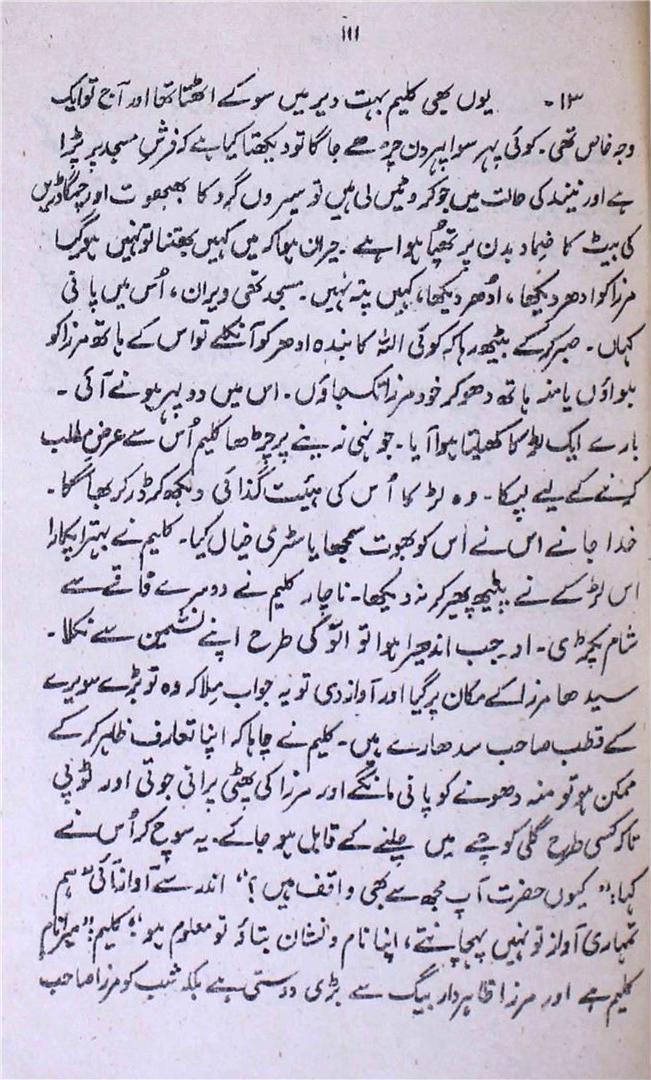 ۱۱۱
۱۳- یوں بھی کلیم بہت دیر میں سو کے اٹھتا تھا اور آج تو ایک
وجہ خاص تھی۔ کوئی پہر سوا پہر دن چڑھے جاگا تو دیکھتا کیا ہے کہ فرشِ مسجد پر پڑا
ہے اور نیند کی حالت میں جو کروٹیں لی ہیں تو سیروں گرد کا بھبھوت اور چمگادڑیں
کی بیٹ کا ضماد بدن پر تھپا ہوا ہے۔ حیران ہوا کہ میں کہیں بھتنا تو نہیں ہو گیا
مرزا کو ادھر دیکھا، اُدھر دیکھا، کہیں پتہ نہیں۔ مسجد تھی ویران، اُس میں پانی
کہاں۔ صبر کرکے بیٹھ رہا کہ کوئی اللہ کا بندہ ادھر کو آنکلے تو اس کے ہاتھ مرزا کو
بلواؤں یا منہ ہاتھ دھو کر خود مرزا تک جاؤں۔ اس میں دوپہر ہونے آئی۔
بارے ایک لڑکا کھیلتا ہوا آیا۔ جونہی زینے پر چڑھا کلیم اُس سے عرضِ مطلب
کرنے کے لیے لپکا۔ وہ لڑکا اُس کی ہیئت گذائی دیکھ کر ڈر کر بھاگا۔
خدا جانے اس نے اس کو بھوت سمجھا یا سڑی خیال کیا۔ کلیم نے بہتیرا پکارا
اس لڑکے نے پیٹھ پھیر کر نہ دیکھا۔ ناچار کلیم نے دوسرے فاقے سے
شام پکڑی۔ اور جب اندھیرا ہوا تو الّو کی طرح اپنے نشیمن سے نکلا۔
سیدھا مرزا کے مکان پر گیا اور آواز دی تو یہ جواب ملا کہ وہ تو بڑے سویرے
کے قطب صاحب سدھارے ہیں۔ کلیم نے چاہا کہ اپنا تعارف ظاہر کر کے
ممکن ہو تو منہ دھونے کو پانی مانگے اور مرزا کی پھٹی پرانی جوتی اور ٹوپی
تاکہ کسی طرح گلی کوچے میں چلنے کے قابل ہو جائے۔ یہ سوچ کر اُس نے
کہا: "کیوں حضرت آپ مجھ سے بھی واقف ہیں؟" اندر سے آواز آئی "ہم
تمہاری آواز تو نہیں پہچانتے، اپنا نام و نشان بتاؤ تو معلوم ہو"؛ کلیم: "میرا نام
کلیم ہے اور مرزا ظاہردار بیگ سے بڑی دوستی ہے بلکہ شب کو مرزا صاحب